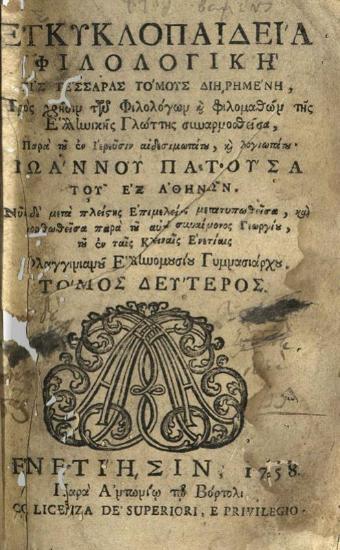 ΕΓΚΥΚΛΟΠΑΙΔΕΙΑ
ΦΙΛΟΛΟΓΙΚΗ
ΕΙΣ ΤΕΣΣΑΡΑΣ ΤΟΜΟΥΣ ΔΙΗΡΗΜΕΝΗ,
Πρὸς χρῆσιν τῶν Φιλολόγων ϗ φιλομαθῶν τῆς
Ἑλληνικῆς Γλώττης συναρμοσθεῖσα,
Παρὰ τοῦ ἐν Ἱερεῦσιν αἰδεσιμωτάτου, ϗ λογιωτάτου
ΙΩΑΝΝΟΥ ΠΑΤΟΥΣΑ
ΤΟΥ ΕΞ ΑΘΗΝΩΝ.
Νῦν δὲ μετὰ πλείστης Ἐπιμελείας μετατυπωθεῖσα, ϗ
διορθωθεῖσα παρὰ τοῦ αὐτοῦ συναίμονος Γεωργίου,
τοῦ ἐν ταῖς Κλειναῖς Ἐνετίαις
Φλαγγινιανοῦ Ἑλληνομουσείου Γυμνασιάρχου.
ΤΟΜΟΣ ΔΕΥΤΕΡΟΣ.
ΕΝΕΤΙΗΣΙΝ, 1758.
Παρὰ Ἀντωνίῳ τῷ Βόρτολι.
CO LICENZA DE' SUPERIORI, E PRIVILEGIO.